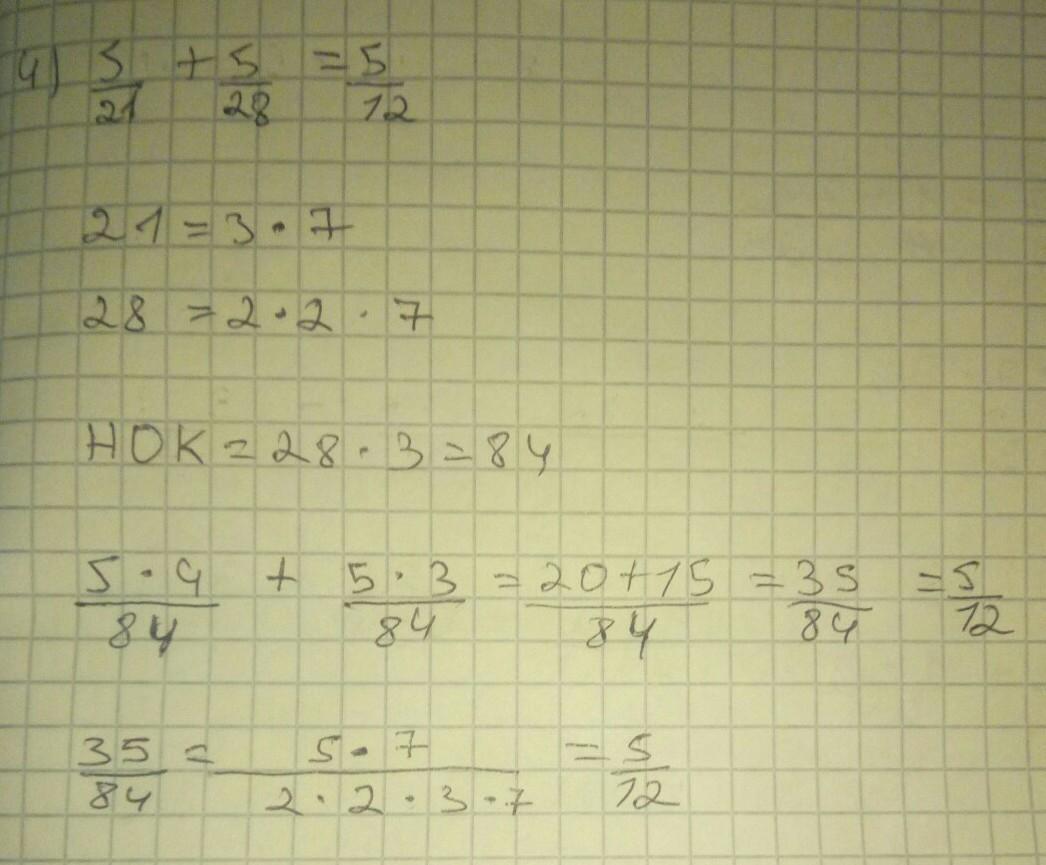 4) 5/21 + 5/28 = 5/12
21 = 3 · 7
28 = 2 · 2 · 7
НОК = 28 · 3 = 84
5 · 4/84 + 5 · 3/84 = 20 + 15/84 = 35/84 = 5/12
35/84 = 5 · 7/2 · 2 · 3 · 7 = 5/12